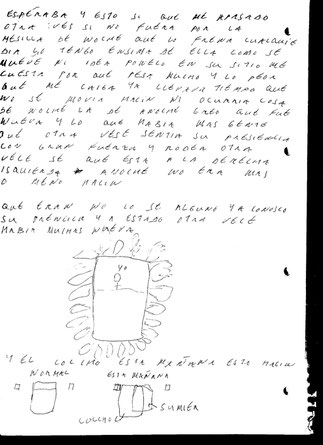 ESPERABA Y ESTO SI QUE ME A PASADO
OTRA VES SI NO FUERA POR LA
MESILLA DE NOCHE QUE LO FRENA CUALQUIE
DIA LO TENGO ENSIMA DE ELLA COMO SE
MUEVE NI IDEA PONELO EN SU SITIO ME
CUESTA POR QUE PESA MUCHO Y LO PEOR
QUE ME CAIGA YA LLEVAVA TIEMPO QUE
NO SE MOVIA MACIN NI OCURRIA COSA
DE NOCHE LA DE ANOCHE CREO QUE FUE
NUEVA Y LO QUE HABIA MAS GENTE
QUE OTRA VESE SENTIA SU PRESIENCIA
CON GRAN FUERZA Y RODEA OTRA
VECE SE QUE ESTA A LA DERECHA
ISQUIERDA ANOCHE NO ERA MAS
O MENO MACIN
QUE ERAN NO LO SE ALGUNO YA CONOSCO
SU PRENCIA Y A ESTADO OTRA VECE
HABIA MUCHAS NUEVA
YO
Y EL COLCHO ESTA MAÑANA ESTA MACIN
NORMAL ESTA MAÑANA
COLCHO SUMIER